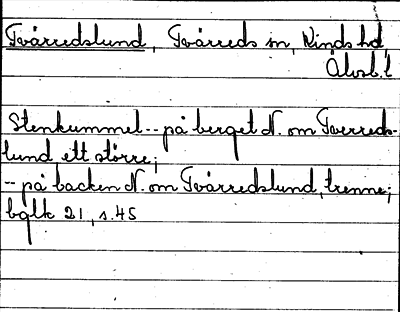 Tvärredslund, Tvärreds sn, Kinds hd,
Älvsb. l
Stenkummel -- på berget N. om Tverreds-
lund, ett större;
-- på backen N. om Tvärredslund, trenne;
bglk 21, s. 45